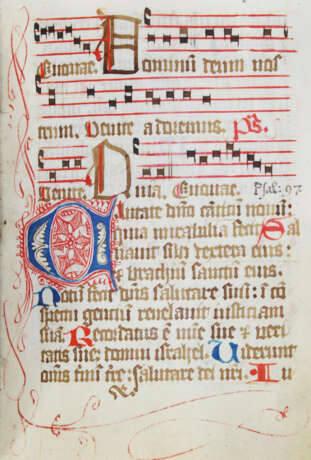 Euouae. Dominum deum nos
trum. Venite adoremus. ps.
Venite Quia. Euouae. Psal: 97
Cantate dno canticu nouu:
quia mirabilia fecit Sal
uauit sibi dextera eius:
et brachiu sanctu eius.
Notu fecit dns salutare suu: i co
spectu genciu reuelauit iusticiam
sua Recordatus e mie sue et veri
tatis sue: domui israhel. Viderunt
oms fini tre: salutare dei nri. Iu